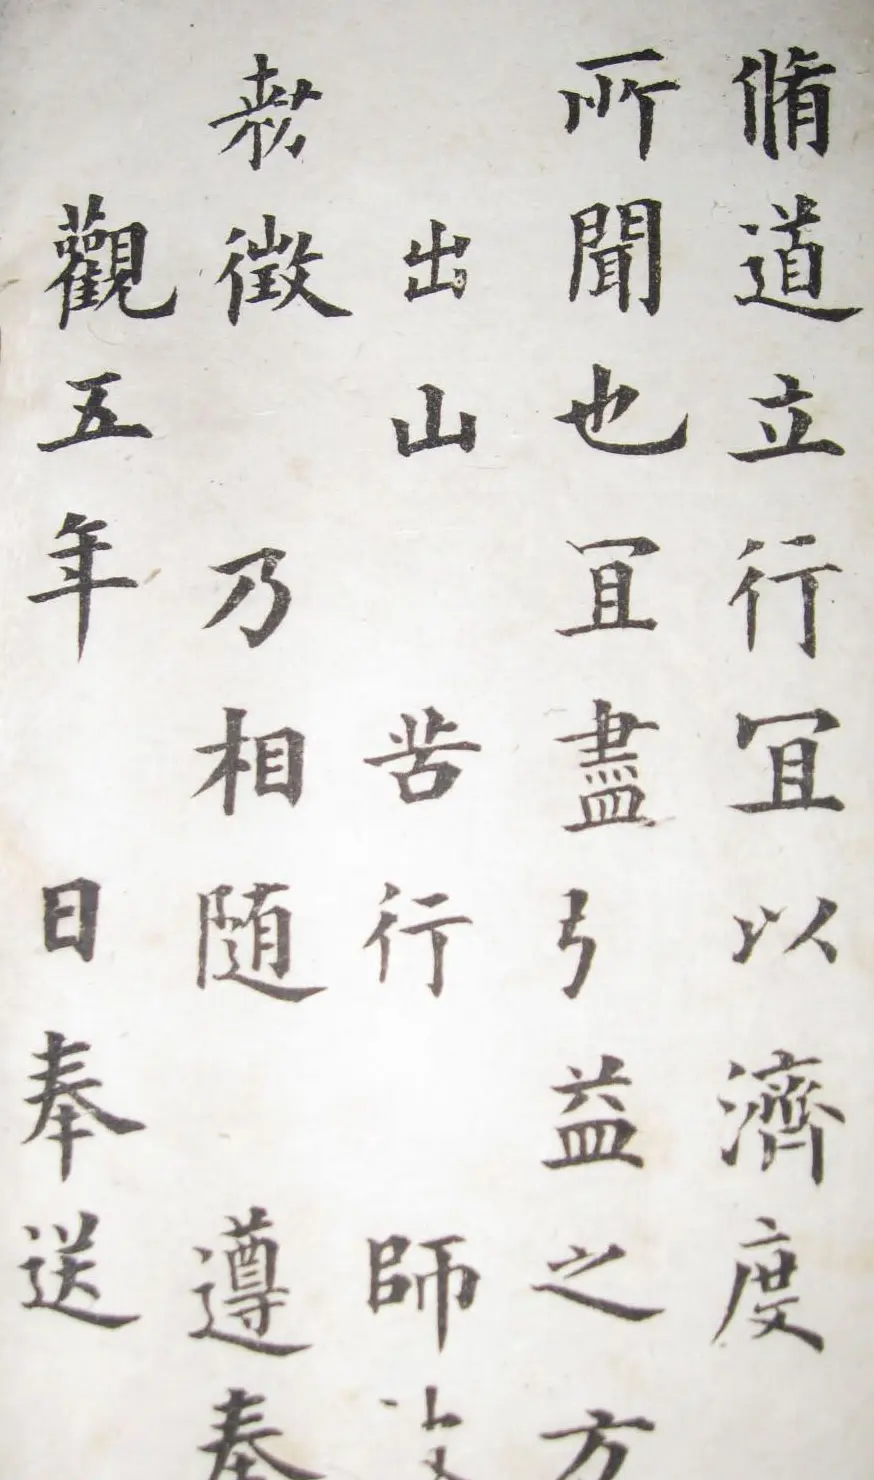 脩道立行冝以濟度
所聞也冝盡弓益之方
出山 苦行 師
徵 乃相随 遵奉
觀五年 日奉送